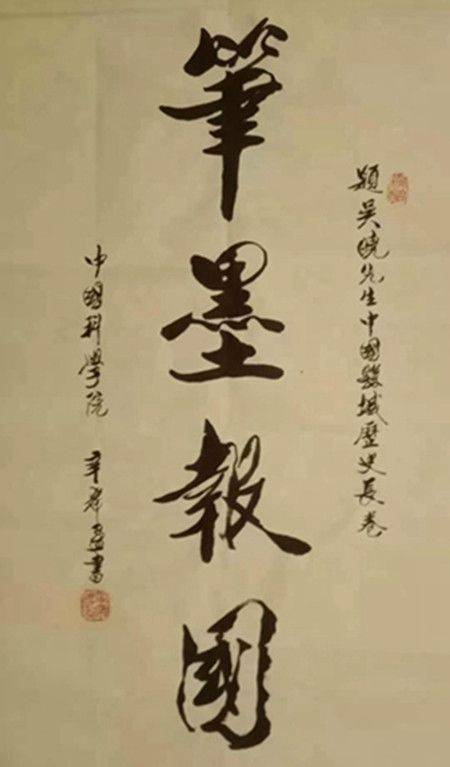 題吴曉先生中國疆域歷史長卷
筆墨報國
中國科學院 書